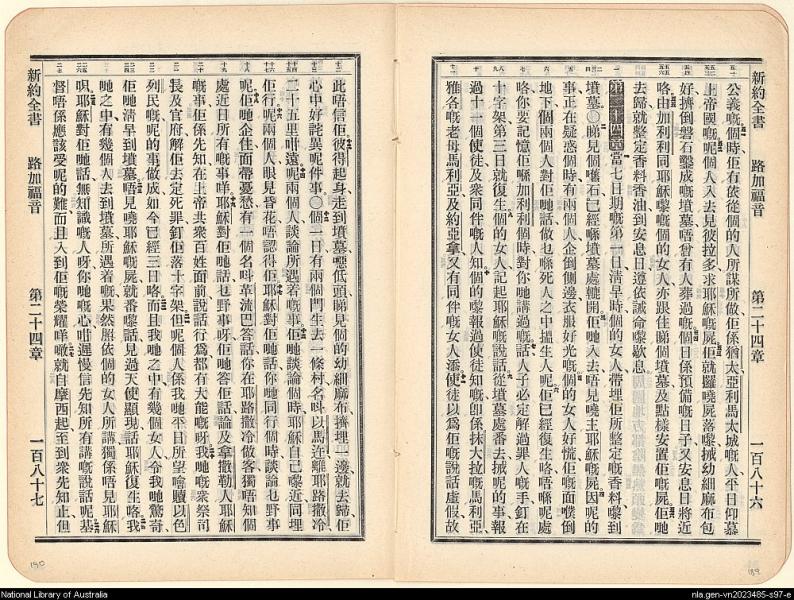 新約全書 路加福音 第二十四章 一百八十六
公義嘅個時佢有依從個的人所謀所做佢係猶太亞利馬太城嘅人平日仰慕
上帝國嘅呢個人入去見彼拉多求耶穌嘅屍佢就攞嘵屍落嚟搣幼細麻布包
好擠倒磐石鑿成嘅墳墓唔曾有人葬過嘅個日係預備嘅日子又安息日將近
咯由加利利同耶穌嚟嘅個的女人亦跟住睇個墳墓及點樣安置佢嘅屍佢哋
去歸就整定香料香油到安息日遵依誡命嚟歇息
第二十四章 當七日期嘅第一日清早時個的女人帶埋佢所整定嘅香料嚟到
墳墓○睇見個嚿石已經喺墳墓處轆開佢哋入去唔見嘵主耶穌嘅屍因呢的
事正在疑惑個時有兩個人企倒側邊衣服好光嘅個的女人好慌佢嘅面僕倒
地下個兩個人對佢哋話做乜喺死人之中搵生人呢佢已經復生咯唔喺呢處
咯你要記憶佢喺加利利個時對你哋講過嘅話人子必定解過罪人嘅手釘在
十字架第三日就復生個的女人記起耶穌嘅說話從墳墓處番去搣呢的事報
過十一個使徒及眾同伴嘅人知個的嚟報過使徒知嘅卽係抹大拉嘅馬利亞
雅各嘅老母馬利亞及約亞拿又有同伴嘅女人添使徒以為佢嘅說話虛假故
此唔信佢彼得起身走到墳墓噁低頭睇見個的幼細麻布擠埋一邊就去歸佢
心中好詫異呢件事○個一日有兩個門生去一條村名呌以馬迕離耶路撒冷
二十五里咁遠呢兩個人談論所遇着嘅事佢哋談論個時耶穌自己嚟近同埋
佢行呢兩個人眼見昏花唔認得佢耶穌對佢哋話你哋同行個時談論乜野事
呢佢哋企住面帶憂愁有一個名呌革流巴答話你在耶路撒冷做客獨唔知個
處近日所有嘅事咩耶穌對佢哋話乜野事呀佢哋答佢話論及拿撒勒人耶穌
嘅事佢係先知在上帝共衆百姓面前說話行爲都有大能嘅呀我哋嘅衆祭司
長及官府解佢去定死罪釘佢落十字架但呢個人係我哋平日所望噲贖以色
列民嘅呢的事做成如今已經三日咯而且我哋之中有幾個女人令我哋驚奇
佢哋清早到墳墓唔見嘵耶穌嘅屍就番嚟話見過天使顯現話耶穌復生咯我
哋之中有幾個人去到墳墓所遇着嘅果然照依個的女人所講獨係唔見耶穌
唄耶穌對佢哋話無知識嘅人呀你哋嘅心咁遲慢信先知所有講嘅說話呢基
督唔係應該受呢的難而且入到佢嘅榮耀咩噉就自摩西起至到衆先知止但
新約全書 路加福音 第二十四章 一百八十七
190
189
National Library of Australia
nla.gen-vn2023485-s97-e